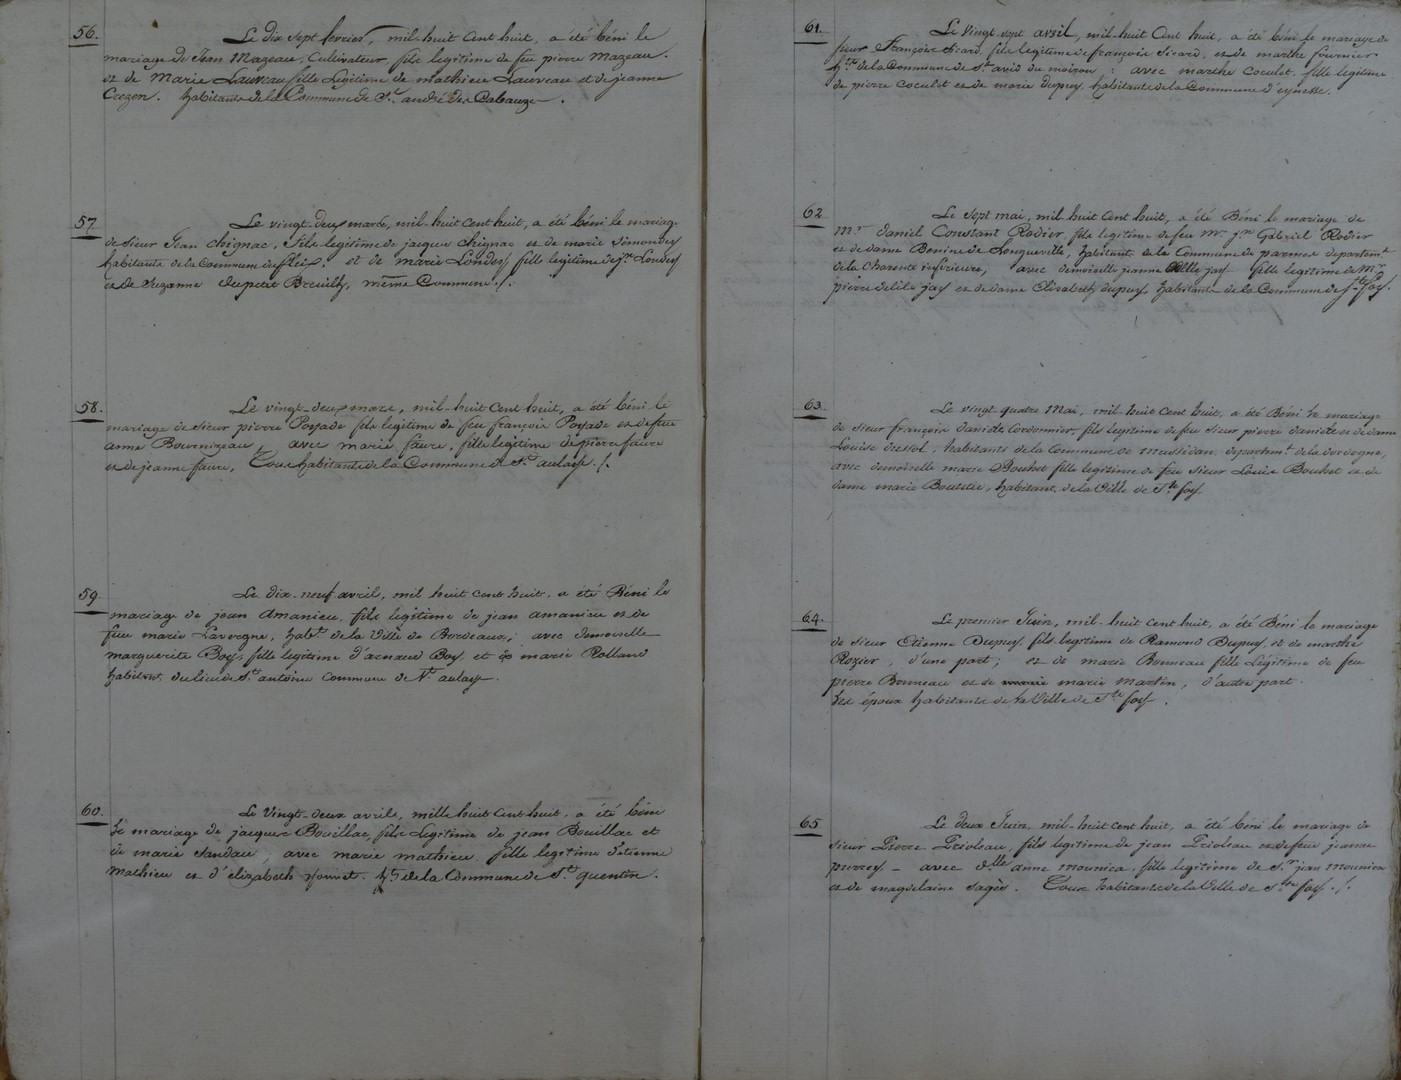 56.
Le dix sept fevrier, mil-huit Cent huit, a été béni le
mariage de Jean Mazeau, Cultivateur, fils legitime de feu pierre Mazeau.
et de Marie Lauveau fille Légitime de mathieu Lauveau et de jeanne
Crezon. habitants de la Commune de St. andré des Cabauze.
57.
Le vingt-deux mars, mil-huit cent huit, a été béni le mariage
de Sieur Jean Chignac, fils legitime de jacques Chignac et de marie Simondes
habitants de la Commune du fleix. et de Marie Londes, fille legitime de jn.
et de Suzanne dupetit Breuilh, même Commune ./.
58.
Le vingt-deux mars, mil-huit Cent huit, a été béni le
mariage de Sieur pierre Poyade fils legitime de feu françois Poyade et de feue
anne Bournizeau, avec marie faure, fille legitime de pierre faure
et de jeanne faure, Tous habitants de la Commune de St. aulaye ./.
59.
Le dix-neuf avril, mil huit cent huit, a été Béni le
mariage de jean Amanieu, fils legitime de jean amanieu et de
feue marie Lavergne, habt. de la Ville de Bordeaux; avec demoiselle
marguerite Boy, fille legitime d'arnaud Boy et de marie Rolland
habitant du lieu de St. antoine Commune de St. aulaye.
60.
Le Vingt-deux avrils, mille huit Cent huit, a été béni
Le mariage de jacques Bouillac, fils Legitime de jean Bouillac et
de marie Sandau, avec marie mathieu fille legitime d'etienne
Mathieu et d'elizabeth jouvet. hts. de la Commune de St. quentin.
61.
Le Vingt-sept avril, mil-huit Cent huit, a été béni le mariage de
sieur François Sicard, fils legitime de françois Sicard, et de marthe fournier
hts. de la Commune de St. avid du moiron : avec marthe Coculet, fille legitime
de pierre Coculet et de marie dupuy, habitants de la Commune d'eynesse.
62
Le Sept mai, mil huit Cent huit, a été Béni le mariage de
Mr. daniel Constant Rodier fils legitime de feu Mr. jn. Gabriel Rodier
et de dame Benine de Longueville, habitant de la Commune de departemt.
de la Charente inferieure, avec demoiselle jeanne jay fille legitime de Mr.
pierre delile jay et de dame Elisabeth dupuy, habitants de la Commune de Ste. foy.
63
Le vingt quatre Mai, mil huit Cent huit, a été Béni le mariage
de Sieur françois daniste Cordonnier, fils legitime de feu Sieur pierre daniste et de dame
Louise habitants de la Commune de Mussidan, departemt. de la dordogne,
avec demoiselle marie Bouhet fille legitime de feu sieur Louis Bouhet et de
dame marie habitant de la Ville de Ste. foy
64.
Le premier Juin, mil-huit cent huit, a été Béni le mariage
de Sieur Etienne Dupuy, fils legitime de Ramond Dupuy, et de marthe
Rozier, d'une part; et de marie Bonneau fille Légitime de feu
pierre Bonneau et de marie marie Martin, d'autre part.
Les époux habitants de la Ville de Ste. foy.
65
Le deux Juin, mil-huit cent huit, a été béni le mariage de
Sieur Pierre Prioleau, fils legitime de jean Prioleau et de feue jeanne
perrey - avec dlle. anne mounica, fille legitime de Sr. jean mounica
et de magdelaine Sagès. Tous habitants de la Ville de Ste. foy ./.